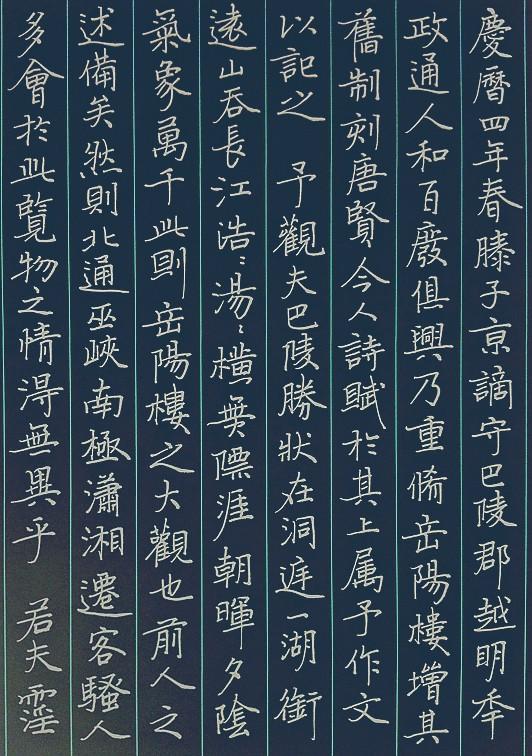 慶曆四年春滕子亰謫守巴陵郡越明秊
政通人和百廢俱興乃重脩岳陽樓增其
舊制刻唐賢今人詩賦於其上属予作文
以記之 予觀夫巴陵勝狀在洞庭一湖銜
遠山吞長江浩〻湯〻橫無際涯朝暉夕陰
氣象萬千此則岳陽樓之大觀也前人之
述備矣然則北通巫峽南極瀟湘遷客騷人
多會於此覽物之情得無異乎 若夫霪